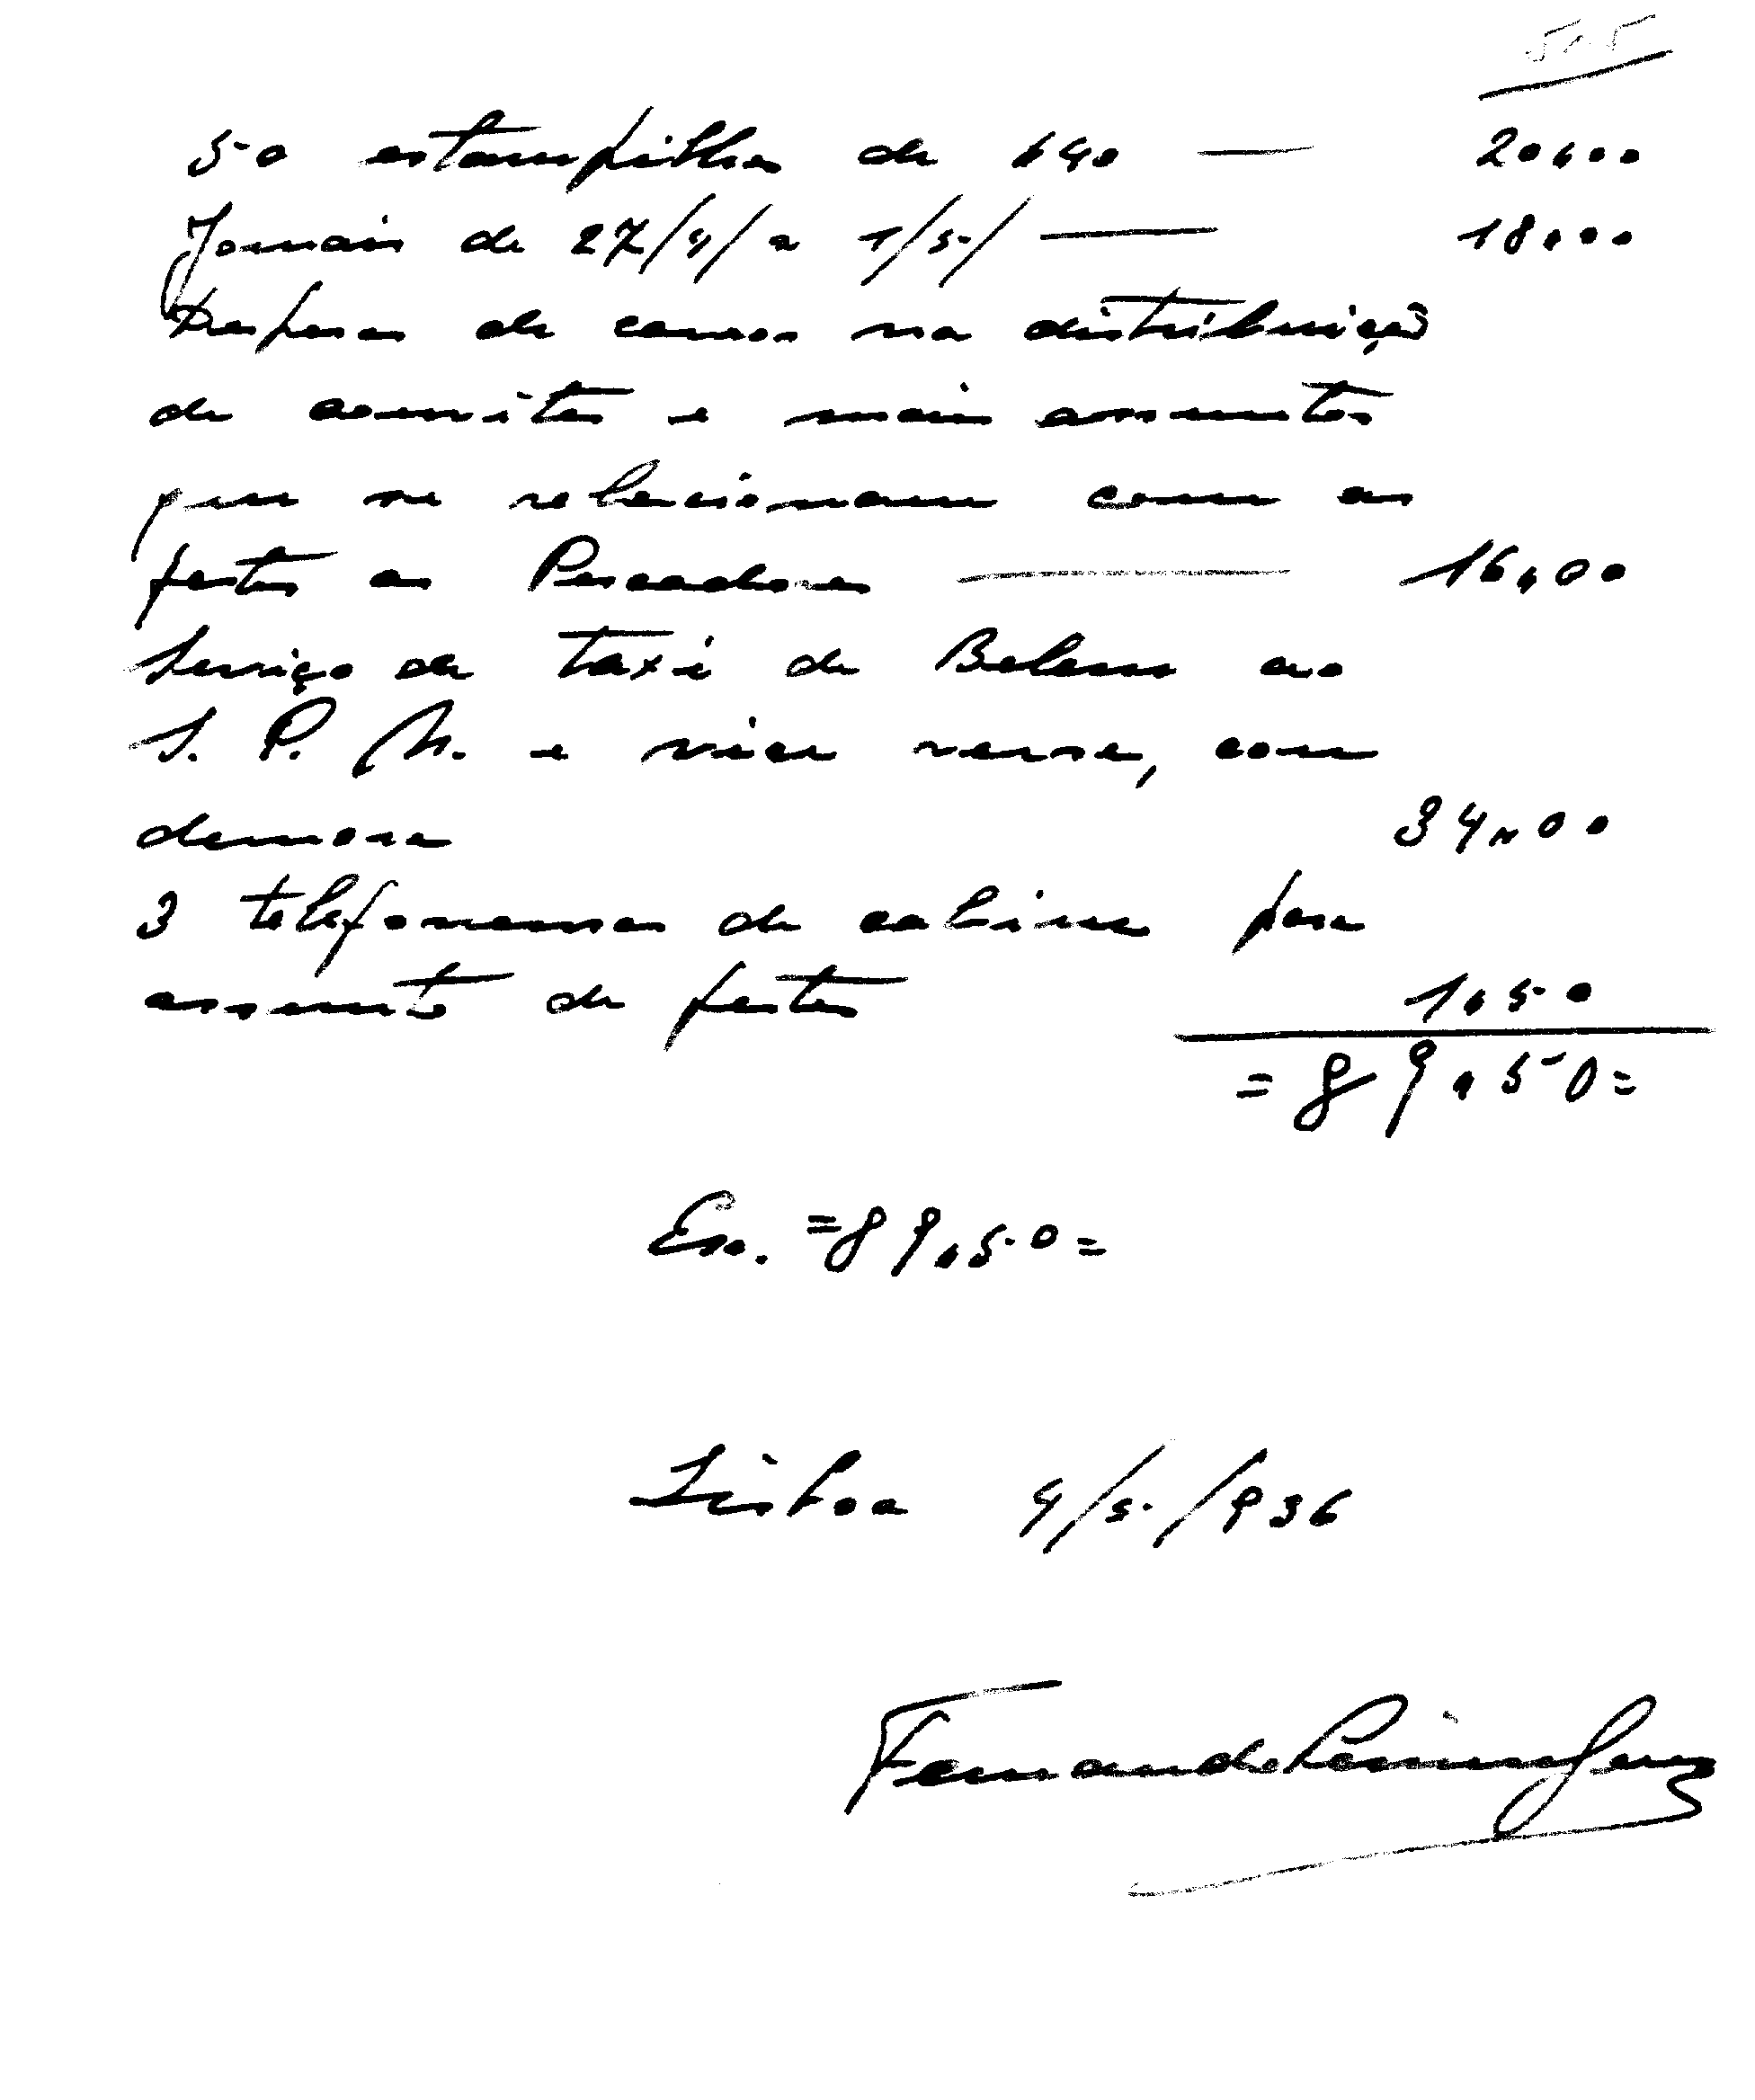 50 estampilhas de $40 — 20$00
Jornais de 27/4/ a 1/5/ — 18$00
Despesas de carros na distribuição
de convites e mais assuntos
que se relacionam com as
festas aos Pescadores — 16$00
Serviço de taxi de Belem ao
S. P. N. e vice versa, com
demora 34$00
3 telefonemas de cabine para
assunto de festas 1$50
= 89$50 =
Esc. = 89$50 =
Lisboa 4/5/936
Fernando